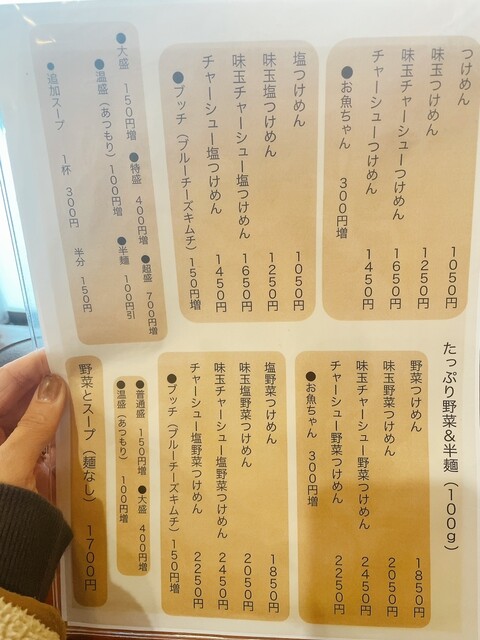 つけめん 1050円
味玉つけめん 1250円
味玉チャーシューつけめん 1650円
チャーシューつけめん 1450円
●お魚ちゃん 300円増
塩つけめん 1050円
味玉塩つけめん 1250円
味玉チャーシュー塩つけめん 1650円
チャーシュー塩つけめん 1450円
●ブッチ(ブルーチーズキムチ)150円増
●大盛 150円増 ●特盛 400円増 ●超盛 700円増
●温盛(あつもり)100円増 ●半麺 100円引
●追加スープ 1杯 300円 半分 150円
たっぷり野菜&半麺(100g)
野菜つけめん 1850円
味玉野菜つけめん 2050円
味玉チャーシュー野菜つけめん 2450円
チャーシュー野菜つけめん 2250円
●お魚ちゃん 300円増
塩野菜つけめん 1850円
味玉塩野菜つけめん 2050円
味玉チャーシュー塩野菜つけめん 2450円
チャーシュー塩野菜つけめん 2250円
●ブッチ(ブルーチーズキムチ)150円増
●普通盛 150円増 ●大盛 400円増
●温盛(あつもり) 100円増
野菜とスープ(麺なし) 1700円